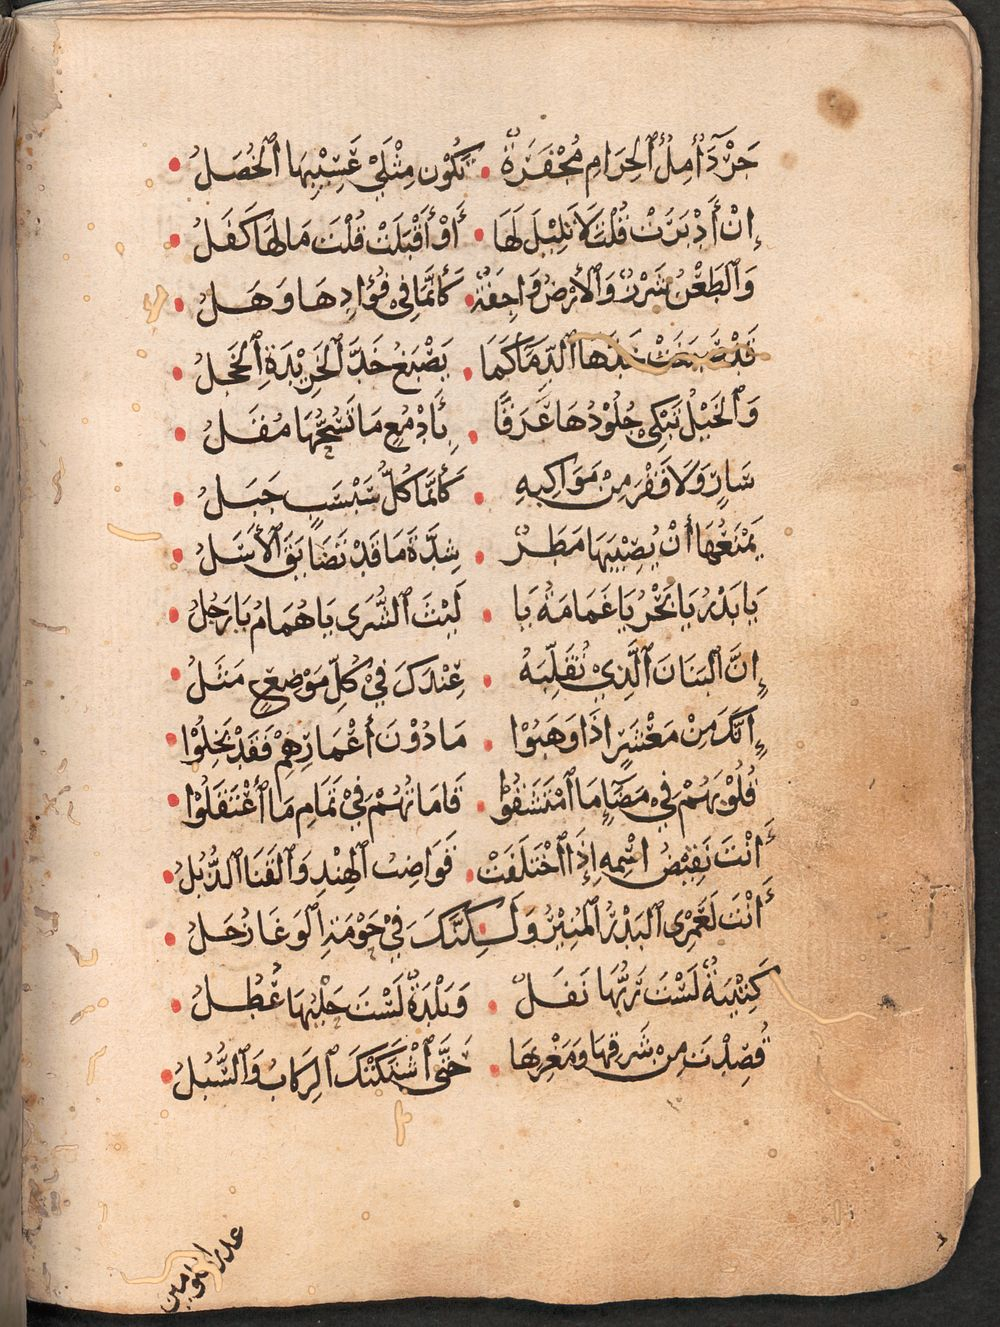 جَرْدَاءَ مِلْءِ ٱلْحِزَامِ مُجْفَرَةٌ • تَكُوْنُ مِثْلَيْ عَسِيْبِهَا ٱلْخُصَلُ •
إِنْ أَدْبَرَتْ قُلْتَ لَا تَلِيْلَ لَهَا • أَوْ أَقْبَلَتْ قُلْتَ مَا لَهَا كَفَلُ •
وَٱلطَّعْنُ شَزْرٌ وَٱلْأَرْضُ وَاجِفَةٌ • كَأَنَّمَا فِي فُؤَادِهَا وَهَلُ •
قَدْ صَبَغَتْ خَدَّهَا ٱلدِّمَاءُ كَمَا • يَصْبَغُ خَدَّ ٱلْخَرِيْدَةِ ٱلْخَجَلُ •
وَٱلْخَيْلُ تَبْكِي جُلُوْدُهَا عَرَقًا • بِأَدْمُعٍ مَا تَسُحُّهَا مُقَلُ •
سَارٍ وَلَا قَفْرَ مِنْ مَوَاكِبِهِ • كَأَنَّمَا كُلُّ سَبْسَبٍ جَبَلُ •
يَمْنَعُهَا أَنْ يُصِيْبَهَا مَطَرٌ • شِدَّةُ مَا قَدْ تَضَايَقَ ٱلْأَسَلُ •
يَا بَدْرُ يَا بَحْرُ يَا غَمَامَةُ يَا • لَيْثَ ٱلشَّرَى يَا هُمَامُ يَا رَجُلُ •
إِنَّ ٱلْبَنَانَ ٱلَّذِي تُقَلِّبُهُ • عِنْدَكَ فِيْ كُلِّ مَوْضِعٍ مَثَلُ •
إِنَّكَ مِنْ مَعْشَرٍ إِذَا وَهَبُوْا • مَا دُوْنَ أَعْمَارِهِمْ فَقَدْ بَخِلُوْا •
قُلُوْبُهُمْ فِيْ مَضَاءِ مَا ٱمْتَشَقُوْا • قَامَاتُهُمْ فِيْ تَمَامِ مَا ٱعْتَقَلُوْا •
أَنْتَ نَقِيْضُ ٱسْمِهِ إِذَا ٱخْتَلَفَتْ • قَوَاضِبُ ٱلْهِنْدِ وَٱلْقَنَا ٱلذُّبُلُ •
أَنْتَ لَعَمْرِي ٱلْبَدْرُ ٱلْمُنِيْرُ وَلَكِنَّكَ فِيْ حَوْمَةِ ٱلْوَغَا زُحَلُ •
كَتِيْبَةٌ لَسْتَ رَبَّهَا نَفَلٌ • وَبَلْدَةٌ لَسْتَ حَلْيَهَا عُطُلُ •
قُصِدْتَ مِنْ شَرْقِهَا وَمَغْرِبِهَا • حَتَّى ٱشْتَكَتْكَ ٱلرِّكَابُ وَٱلسُّبُلُ •